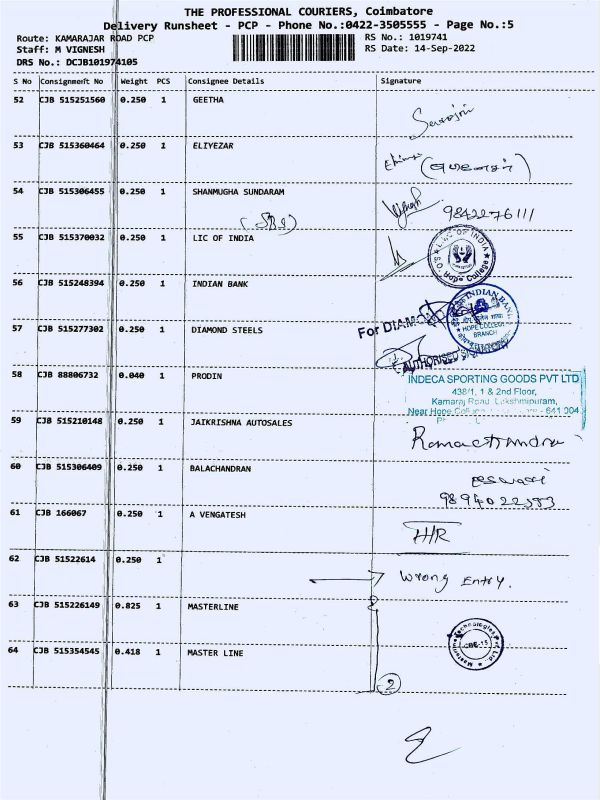 THE PROFESSIONAL COURIERS, Coimbatore
Delivery Runsheet - PCP - Phone No.:0422-3505555 - Page No.:5
Route: KAMARAJAR ROAD PCP RS No.: 1019741
Staff: M VIGNESH RS Date: 14-Sep-2022
DRS No.: DCJB101974105
S No Consignment No Weight PCS Consignee Details Signature
52 CJB 515251560 0.250 1 GEETHA
53 CJB 515360464 0.250 1 ELIYEZAR
54 CJB 515306455 0.250 1 SHANMUGHA SUNDARAM 9842276111
55 CJB 515370032 0.250 1 LIC OF INDIA
LIC OF INDIA
Hope College
56 CJB 515248394 0.250 1 INDIAN BANK
INDIAN BANK
HOPE COLLEGE
BRANCH
57 CJB 515277302 0.250 1 DIAMOND STEELS
For DIAMOND
AUTHORISED SIGNATORY
58 CJB 88806732 0.040 1 PRODIN
INDECA SPORTING GOODS PVT LTD
438/1, 1 & 2nd Floor,
Kamaraj Road, Lakshmipuram,
Near Hope College, - 641 004
59 CJB 515210148 0.250 1 JAIKRISHNA AUTOSALES
Ramachandra
60 CJB 515306409 0.250 1 BALACHANDRAN
61 CJB 166067 0.250 1 A VENGATESH
H/R
62 CJB 51522614 0.250 1
Wrong Entry.
63 CJB 515226149 0.825 1 MASTERLINE
CBE-15
64 CJB 515354545 0.418 1 MASTER LINE
2